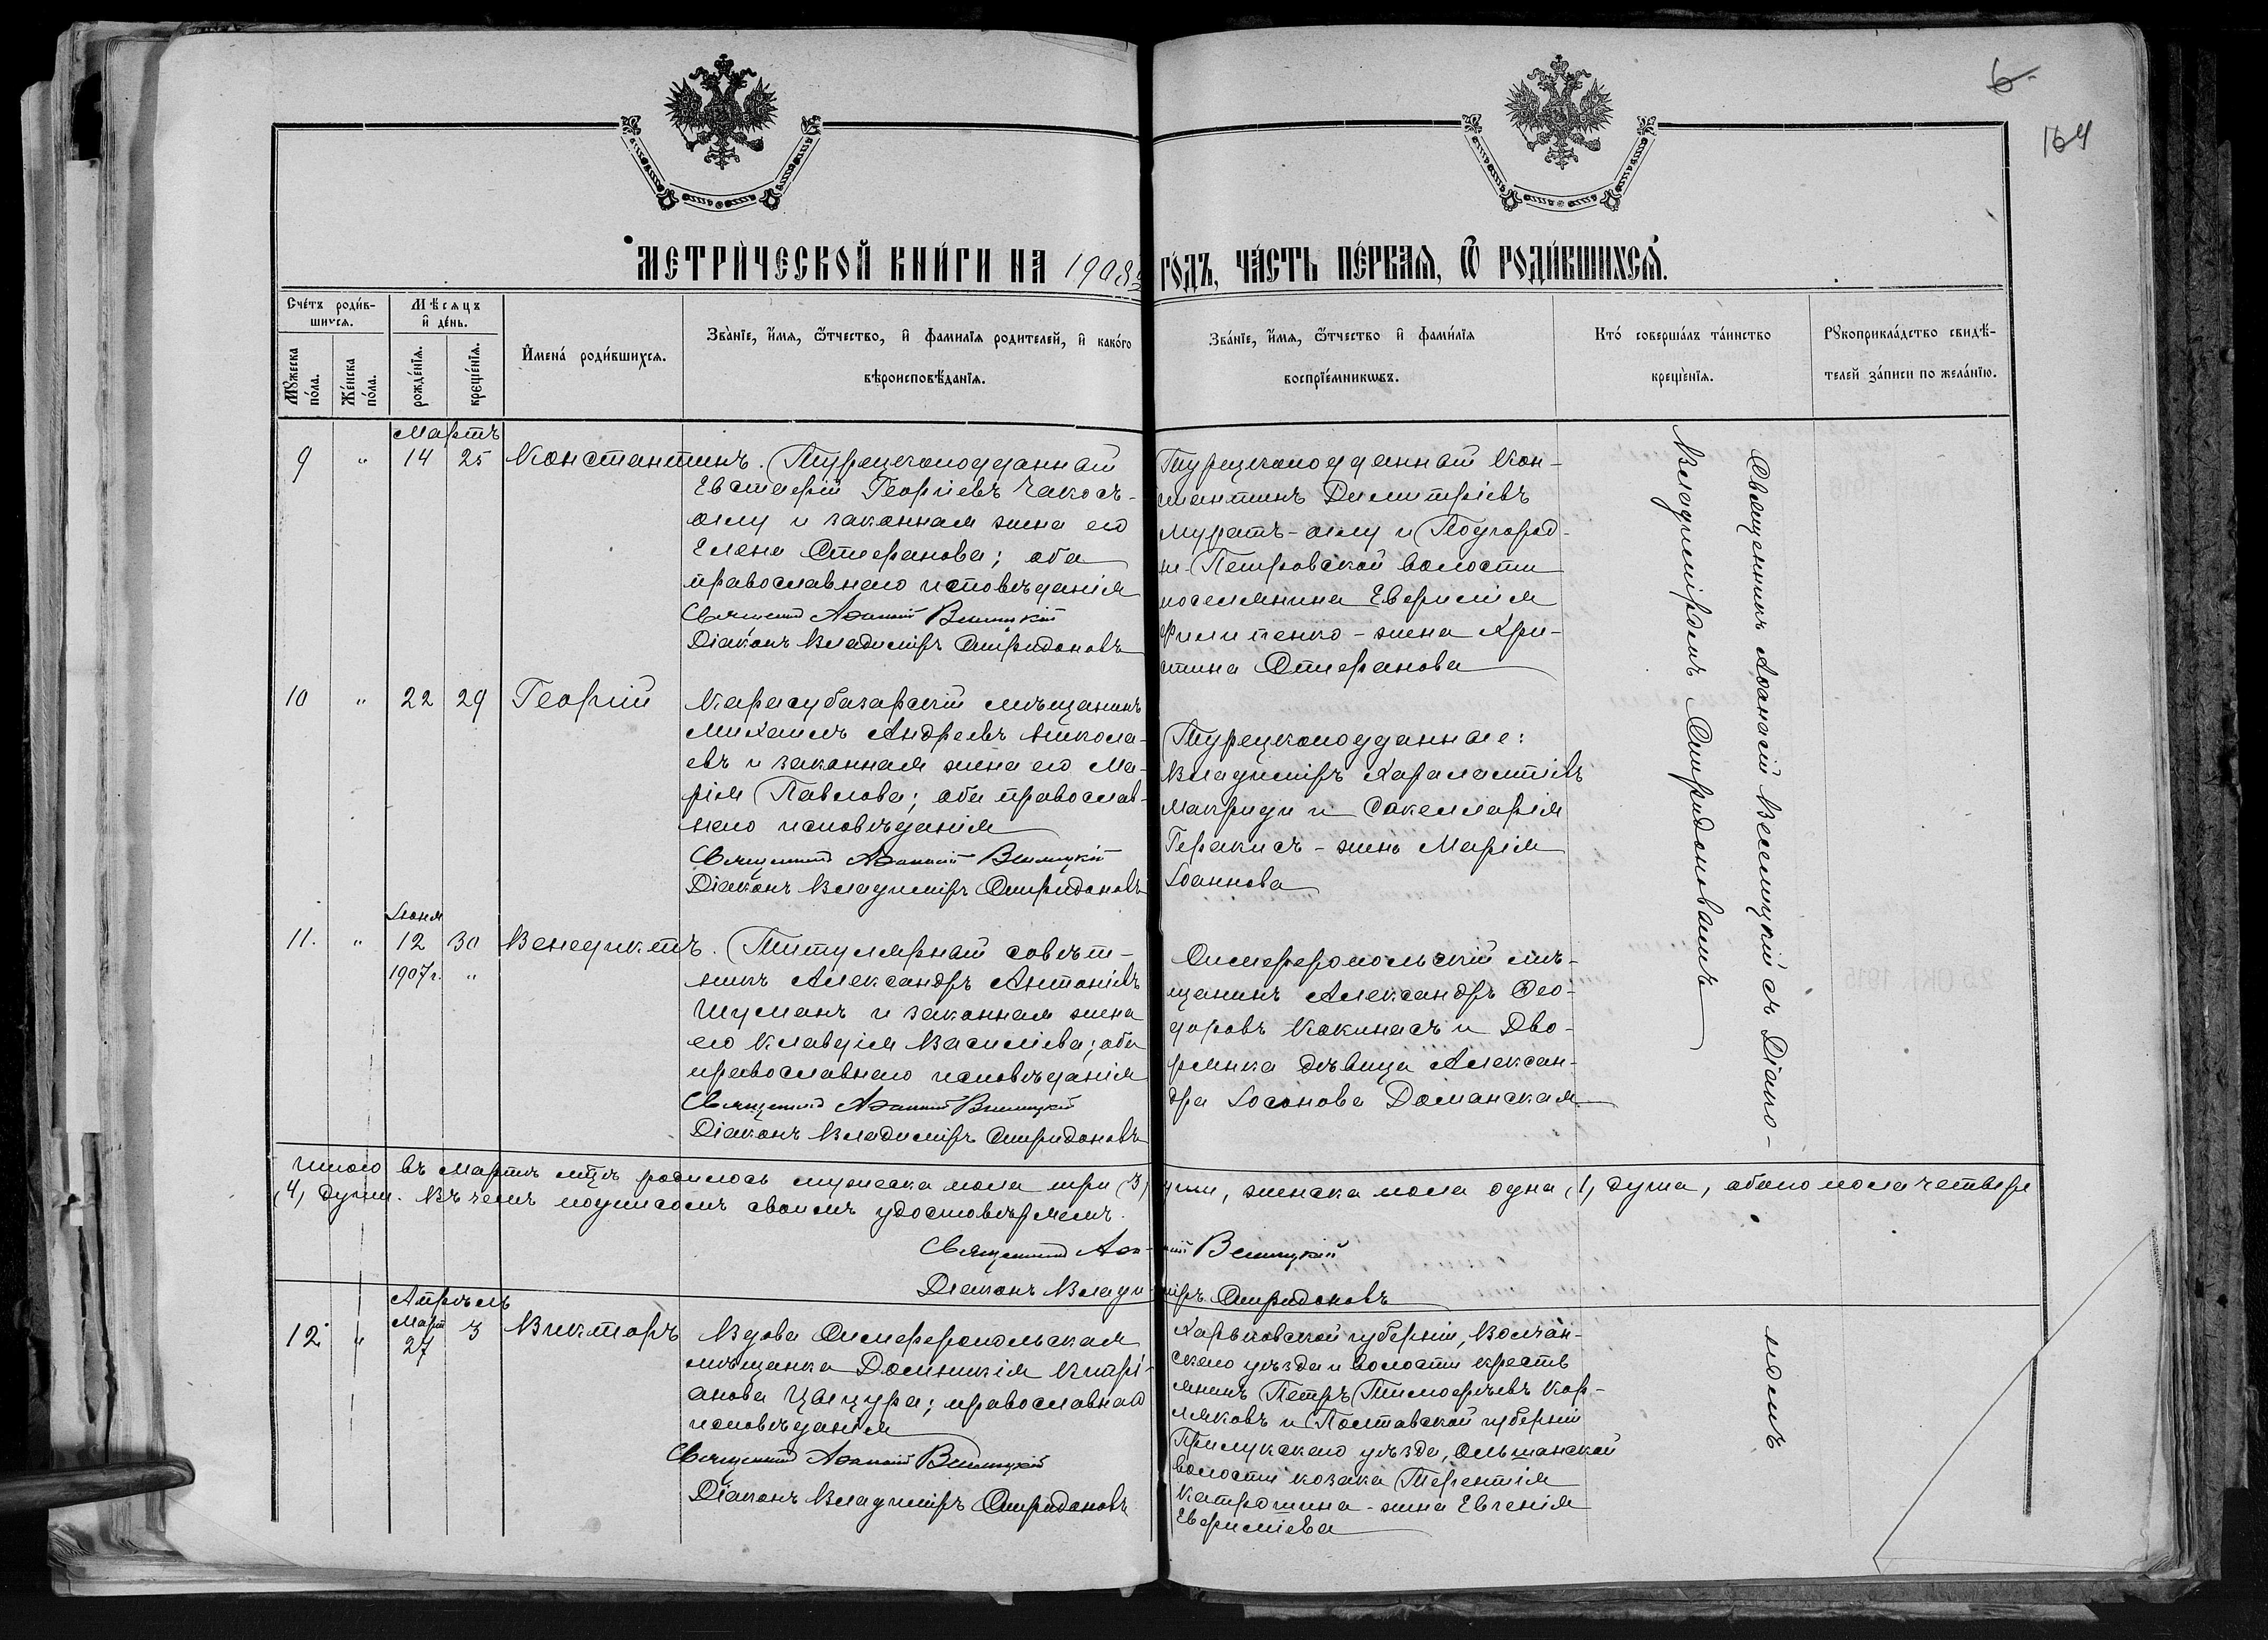 6
164
МЕТРИЧЕСКОЙ КНИГИ НА 1908й
ГОДЪ, ЧАСТЬ ПЕРВАЯ, Ѿ РОДИВШИХСЯ.
Счетъ родив-
шихся.
Мѣсяцъ
и день.
Мужеска
пола.
Женска
пола.
рожденія.
крещенія.
Имена родившихся.
Званіе, имя, ѿчество, и фамилія родителей, и какого
вѣроисповѣданія.
Званіе, имя, ѿчество и фамилія
воспріемникѡвъ.
Кто совершалъ таинство
крещенія.
Рукоприкладство свидѣ-
телей записи по желанію.
Мартъ
9 " 14 25 Константинъ. Турецкоподданный
Евстафій Георгіевъ Чакосъ-
оглу и законная жена его
Елена Стефанова; оба
православнаго исповѣданія
Священникъ Аѳанасій Веселицкій
Діаконъ Владиміръ Спиридоновъ
Турецкоподданный Кон-
стантинъ Димитріевъ
Муратъ-оглу и Подгород-
не-Петровской волости
поселянина Евфимія
Филипенко - жена Хри-
стина Стефанова
10 " 22 29 Георгій
Карасубазарскій мѣщанинъ
Михаилъ Андреевъ Никола-
евъ и законная жена его Ма-
рія Павлова; оба православ-
наго исповѣданія
Священникъ Аѳанасій Веселицкій
Діаконъ Владиміръ Спиридоновъ
Турецкоподданные:
Владиміръ Харалампіевъ
Макриди и Сакелларія
Геракисъ - жена Марія
Іоаннова
Іюня
11. " 12 30 Венедиктъ. Титулярный совѣт-
1907 г. "
никъ Александръ Антоніевъ
Шуманъ и законная жена
его Клавдія Василіева; оба
православнаго исповѣданія
Священникъ Аѳанасій Веселицкій
Діаконъ Владиміръ Спиридоновъ
Симферопольскій мѣ-
щанинъ Александръ Ѳео-
доровъ Какинасъ и Дво-
рянка дѣвица Алексан-
дра Іосифова Доманская
Священникъ Аѳанасій Веселицкій съ Діако-
Владиміромъ Спиридоновымъ
Итого въ Мартѣ мцѣ родилось мужеска пола три (3)
души, женска пола одна (1) душа, обоего пола четыре
(4) души. Въ чемъ подписомъ своимъ удостовѣряемъ.
Священникъ Аѳанасій Веселицкій
Діаконъ Владиміръ Спиридоновъ
Апрѣль
Март
12 " 27 3 Викторъ
Вдова Симферопольская
мѣщанка Домникія Кипрі-
анова Цыцура; православнаго
исповѣданія
Священникъ Аѳанасій Веселицкій
Діаконъ Владиміръ Спиридоновъ
Харьковской губерніи, Волчан-
скаго уѣзда и волости кресть
янинъ Петръ Тимоѳеевъ Кор-
мяковъ и Полтавской губерніи
Прилукскаго уѣзда, Ольшанской
волости козака Терентія
Катрошина - жена Евгенія
Евфиміева
номъ